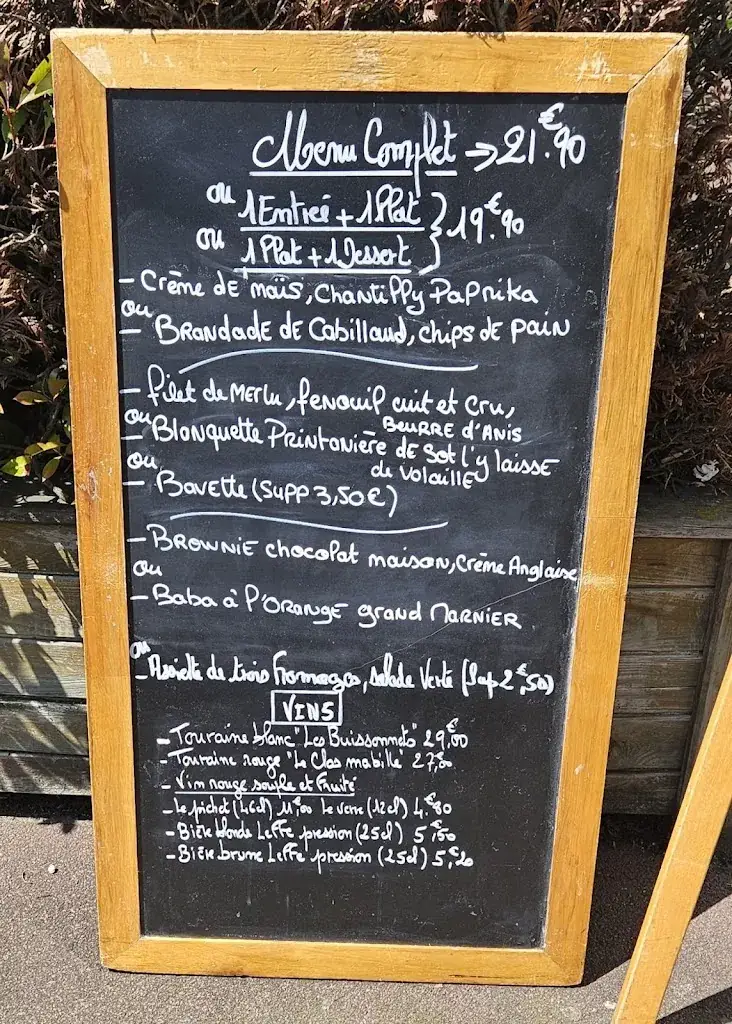 Menu Complet → 21.€90
ou 1 Entrée + 1 Plat
ou 1 Plat + 1 Dessert } 19.€90
- Crème de maïs, Chantilly Paprika
ou
- Brandade de Cabillaud, chips de pain
- Filet de Merlu, fenouil cuit et cru,
Beurre d'Anis
ou
- Blanquette Printanière de Sot l'y laisse
de volaille
ou
- Bavette (Supp 3,50€)
- Brownie chocolat maison, Crème Anglaise
ou
- Baba à l'orange grand Marnier
ou
- Assiette de trois fromages, salade verte (Sup 2€,50)
VINS
- Touraine blanc "Les Buissonnets" 29,€00
- Touraine rouge "Le Clos mabille"
- Vin rouge souple et fruité
- Le pichet (46cl) 11€,00 Le verre (12cl) 4.€80
- Bière blonde Leffe pression (25cl) 5€,50
- Bière brune Leffe pression (25cl)